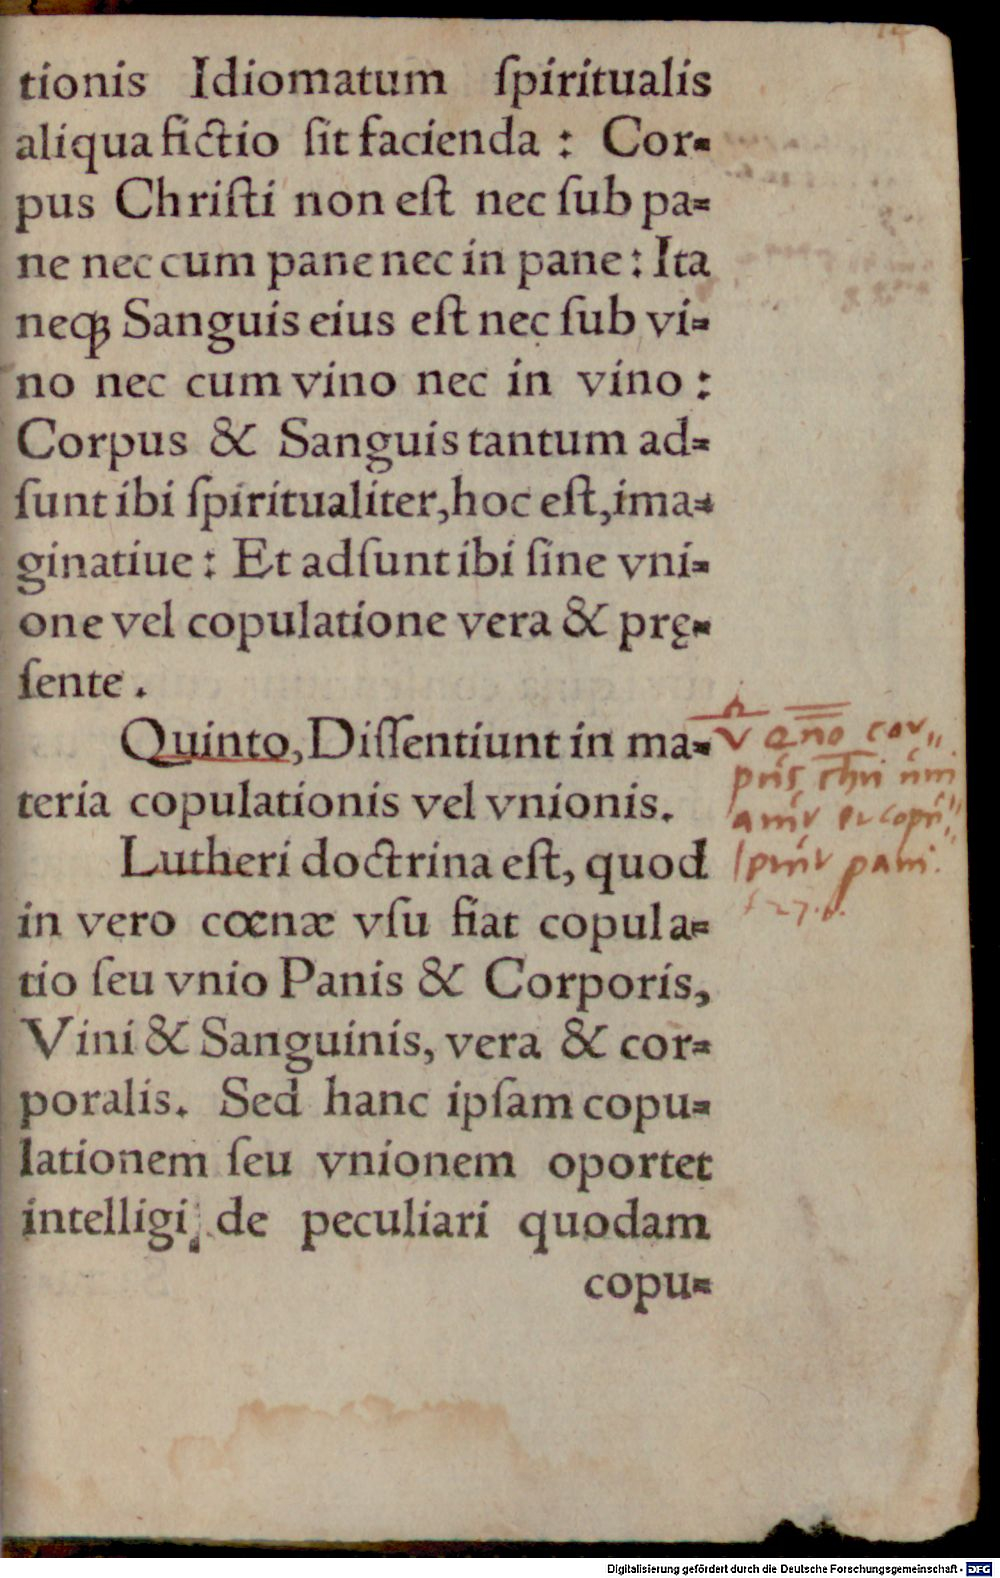 tionis Idiomatum ſpiritualis
aliqua fictio ſit facienda : Cor=
pus Chriſti non eſt nec ſub pa=
ne nec cum pane nec in pane : Ita
neqꝫ Sanguis eius eſt nec ſub vi=
no nec cum vino nec in vino :
Corpus & Sanguis tantum ad=
ſunt ibi ſpiritualiter, hoc eſt, ima=
ginatiue : Et adſunt ibi ſine vni=
one vel copulatione vera & prę=
ſente .
Quinto, Diſſentiunt in ma=
teria copulationis vel vnionis.
Lutheri doctrina eſt, quod
in vero cœnæ vſu fiat copula=
tio ſeu vnio Panis & Corporis,
Vini & Sanguinis, vera & cor=
poralis. Sed hanc ipſam copu=
lationem ſeu vnionem oportet
intelligi de peculiari quodam
copu=
V cor
pani.
27.
Digitalisierung gefördert durch die Deutsche Forschungsgemeinschaft - DFG